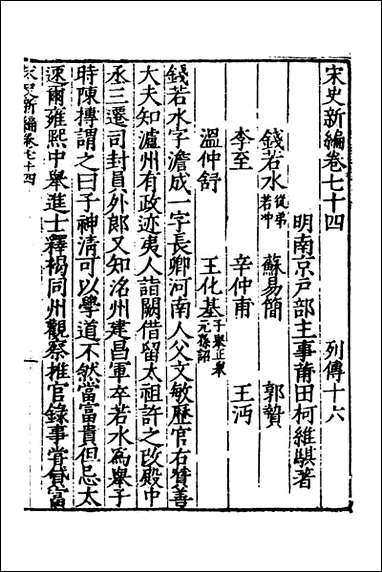 宋史新編卷七十四 列傳十六
明南京戸部主事莆田柯維騏著
錢若水從弟若冲 蘇易簡 郭贄
李至 辛仲甫 王沔
溫仲舒 王化基子舉正舉元孫詔
錢若水字澹成一字長卿河南人父文敏歷官右賛善
大夫知瀘州有政迹夷人詣闕借留太祖許之改殿中
丞三遷司封員外郎又知洺州建昌軍卒若水爲舉子
時陳摶謂之曰子神清可以學道不然當富貴但忌太
速爾雍熙中舉進士釋褐同州觀察推官錄事嘗貸富
宋史新編卷七十四 一